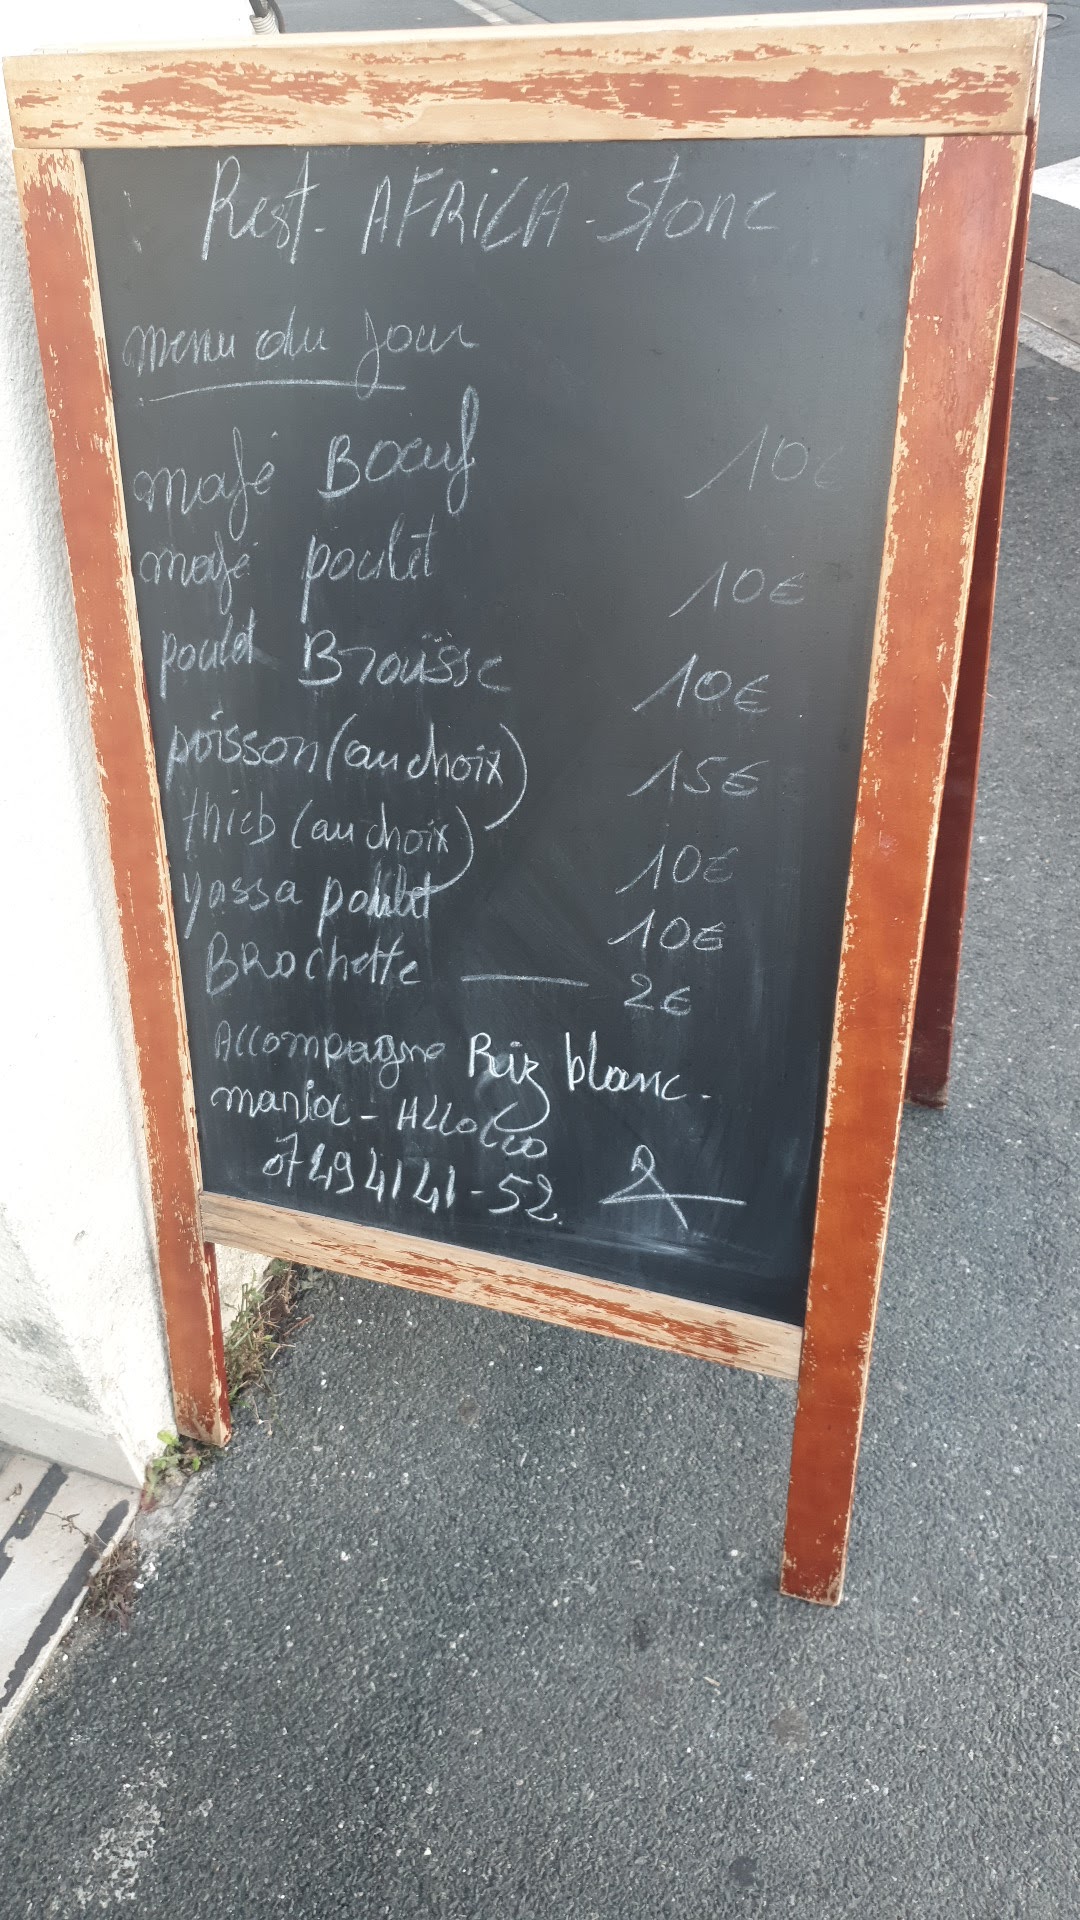 Rest. AFRICA-Stone
menu du jour
mafé Boeuf 10€
mafé poulet 10€
poulet Broüsse 10€
poisson (au choix) 15€
thieb (au choix) 10€
yassa poulet 10€
BROchette — 2€
Accompagne Riz blanc.
manioc - Alloco
07494141-52.